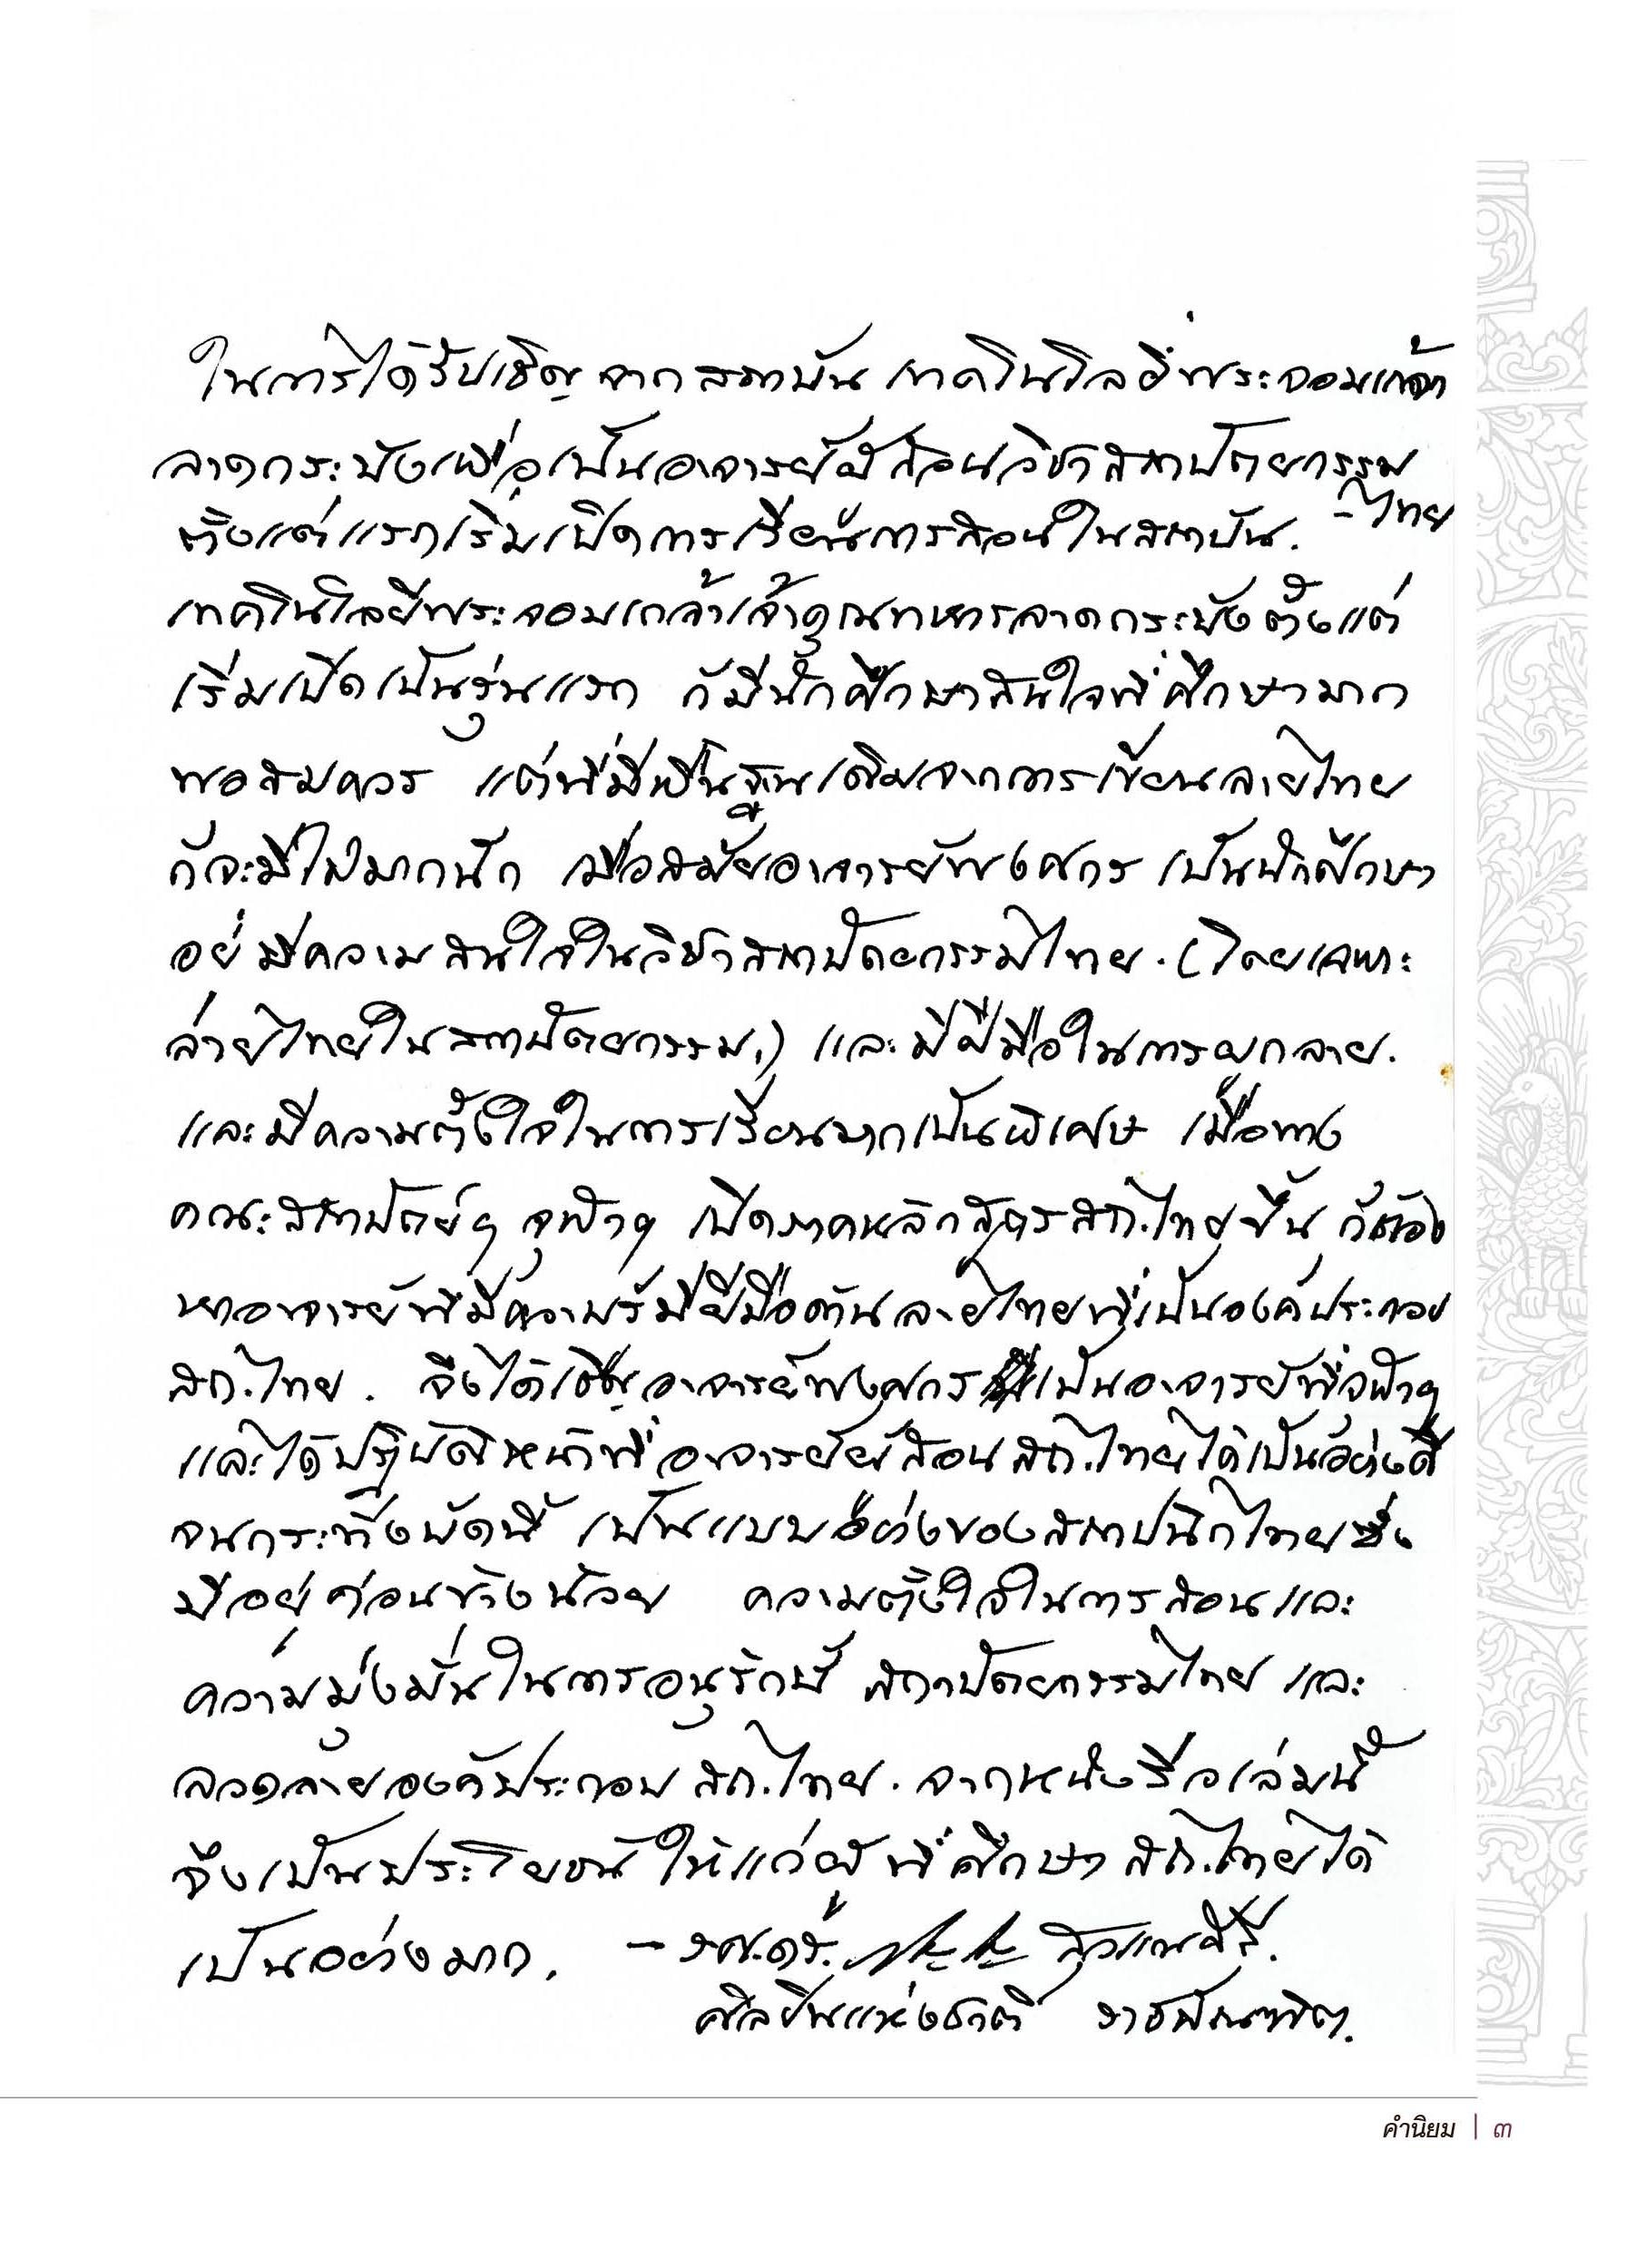 ในการได้รับเชิญจากสถาบันเทคโนโลยีพระจอมเกล้า
ลาดกระบังเพื่อเป็นอาจารย์ผู้สอนวิชาสถาปัตยกรรม
-ไทย
ตั้งแต่แรกเริ่มเปิดการเรียนการสอนในสถาบัน.
เทคโนโลยีพระจอมเกล้าเจ้าคุณทหารลาดกระบังตั้งแต่
เริ่มเปิดเป็นรุ่นแรก ก็มีนักศึกษาสนใจที่ศึกษามาก
พอสมควร แต่ที่มีพื้นฐานเดิมจากการเขียนลายไทย
ก็จะมีไม่มากนัก เมื่อสมัยอาจารย์พงศกร เป็นนักศึกษา
อยู่ มีความสนใจในวิชาสถาปัตยกรรมไทย. (โดยเฉพาะ
ลายไทยในสถาปัตยกรรม.) และมีฝีมือในการผูกลาย.
และมีความตั้งใจในการเรียนมากเป็นพิเศษ เมื่อทาง
คณะสถาปัตย์ฯ จุฬาฯ เปิดภาคหลักสูตรสถ.ไทยขึ้น ก็ต้อง
หาอาจารย์ที่มีความรู้มีฝีมือด้านลายไทยที่เป็นองค์ประกอบ
สถ.ไทย. จึงได้เชิญอาจารย์พงศกร เป็นอาจารย์ที่จุฬาฯ
และได้ปฏิบัติหน้าที่อาจารย์ผู้สอนสถ.ไทยได้เป็นอย่างดี
จนกระทั่งบัดนี้ เป็นแบบอย่างของสถาปนิกไทยซึ่ง
มีอยู่ค่อนข้างน้อย ความตั้งใจในการสอนและ
ความมุ่งมั่นในการอนุรักษ์ สถาปัตยกรรมไทย และ
ลวดลายองค์ประกอบ สถ.ไทย. จากหนังสือเล่มนี้
จึงเป็นประโยชน์ให้แก่ผู้ที่ศึกษา สถ.ไทยได้
เป็นอย่างมาก. - รศ.ดร.
ศิลปินแห่งชาติ ราชบัณฑิต.
คำนิยม | ๓